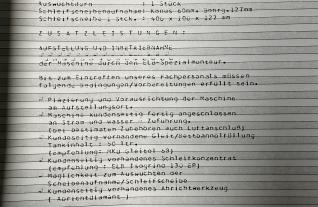 Auswuchtdorn : 1 Stück
Schleifscheibenaufnahme: Konus 60mm. Bohrg.127mm
Schleifscheibe 1 Stck. : 400 x 100 x 127 mm
Z U S A T Z L E I S T U N G E N :
AUFSTELLUNG UND INBETRIEBNAHME
der Maschine durch den ELB-Spezialmonteur.
Bis zum Eintreffen unseres Fachpersonals müssen
folgende Bedingungen/Vorbereitungen erfüllt sein.
Plazierung und Vorausrichtung der Maschine
am Aufstellungsort.
Maschine kundenseitig fertig angeschlossen
an Strom und Wasser - Zuführung.
(bei bestimmten Zubehören auch Luftanschluß)
Kundenseitig vorhandene Gleit/Bettbahnölfüllung
Tankinhalt : 50 ltr.
(Empfehlung: Gleitöl 68)
Kundenseitig vorhandenes Schleifkonzentrat
(Empfehlung : ELB 130 EP)
Möglichkeit zum Auswuchten der
Scheibenaufnahme/Schleifscheibe
Kundenseitig vorhandenes Abrichtwerkzeug
( Abrichtdiamant )